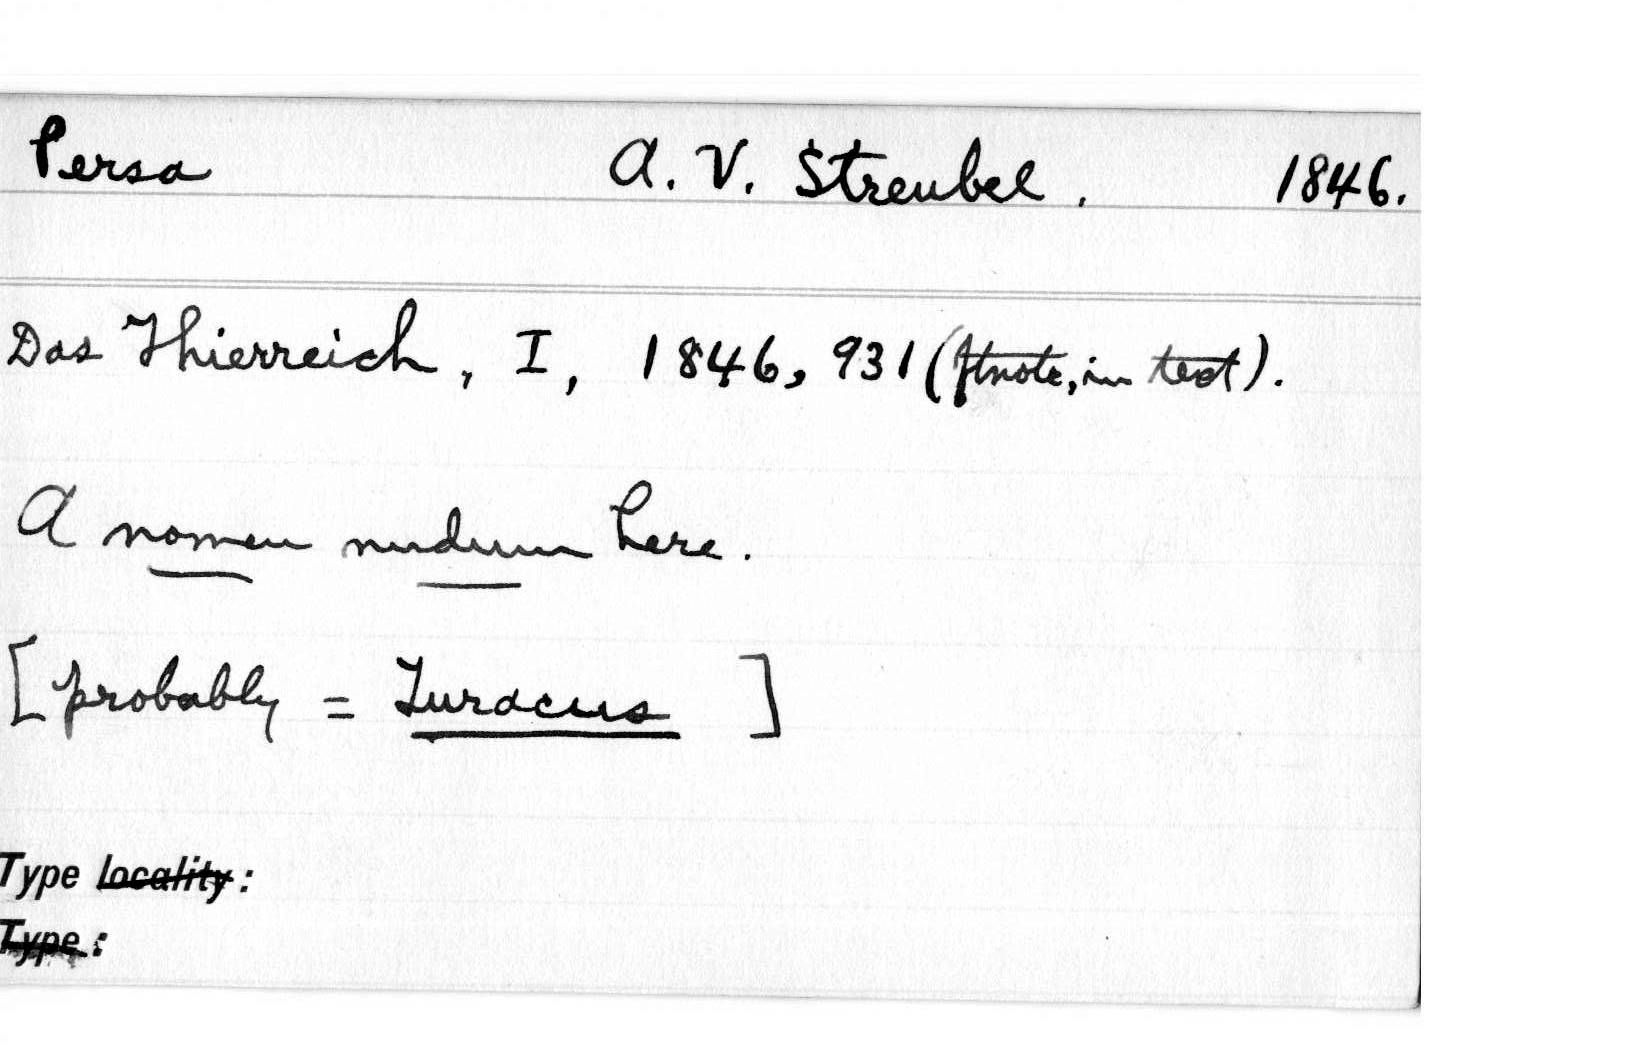 Persa A. V. Streubel. 1846.
Das Thierreich, I, 1846, 931 (ftnote, in text).
A nomen nudum here.
[probably = Turacus ]
Type locality:
Type: